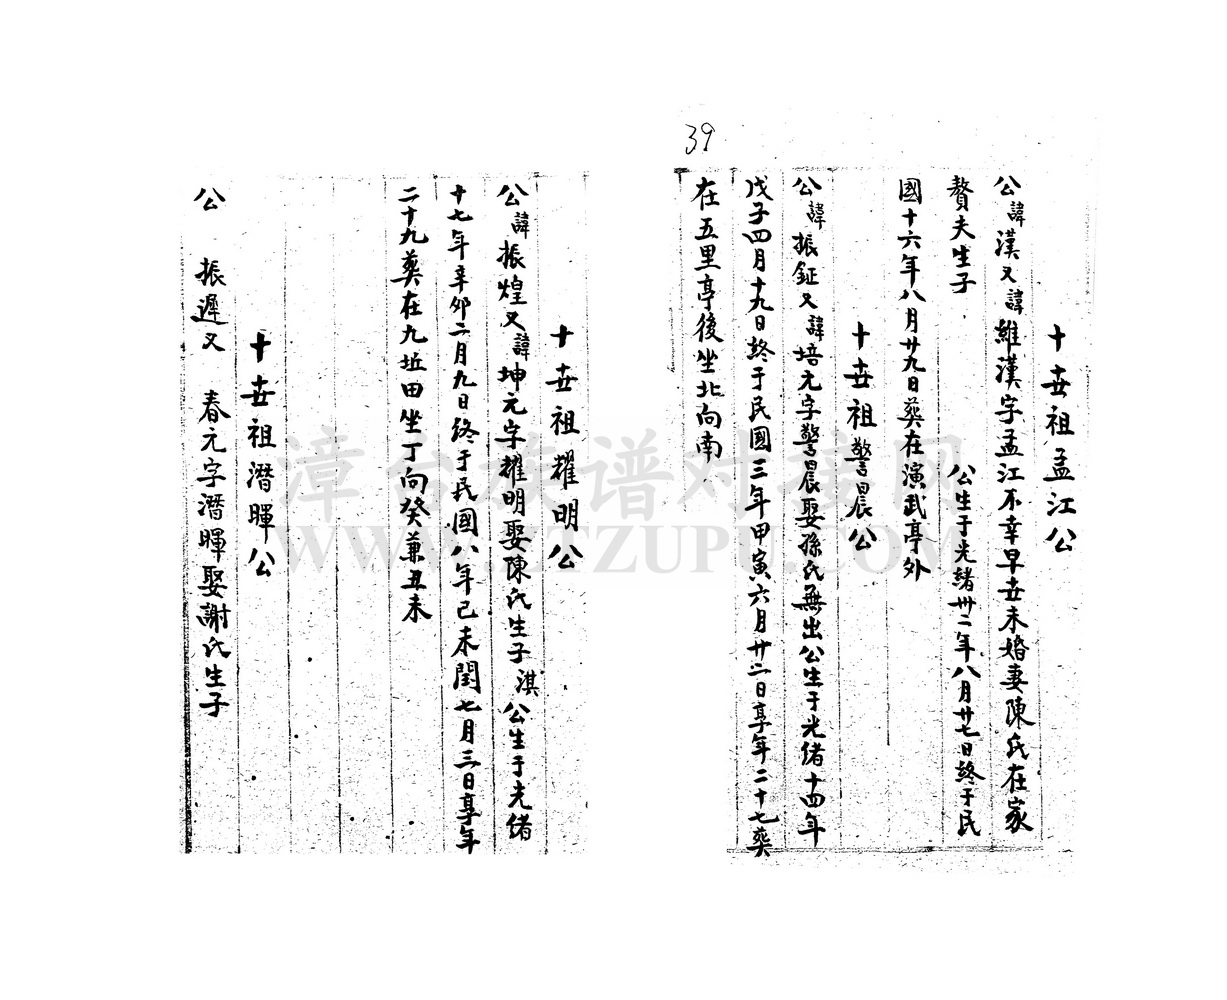 39
十世祖孟江公
公諱漢又諱維漢字孟江不幸早世未婚妻陳氏在家
贅夫生子 公生于光緒卅二年八月廿七日終于民
國十六年八月廿九日葬在演武亭外
十世祖警晨公
公諱振鉦又諱培元字警晨娶孫氏無出公生于光緒十四年
戊子四月十九日終于民國三年甲寅六月廿二日享年二十七葬
在五里亭後坐北向南
十世祖耀明公
公諱振煌又諱坤元字耀明娶陳氏生子淇公生于光緒
十七年辛卯二月九日終于民國八年己未閏七月三日享年
二十九葬在九坵田坐丁向癸兼丑未
十世祖潛暉公
公 振遲又 春元字潛暉娶謝氏生子
漳台族谱对接网
WWW.ZTZUPU.COM